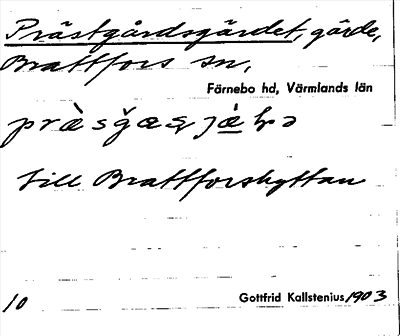 Prästgårdsgärdet, gärde,
Brattfors sn,
Färnebo hd, Värmlands län
till Brattforshyttan
10 Gottfrid Kallstenius, 1903